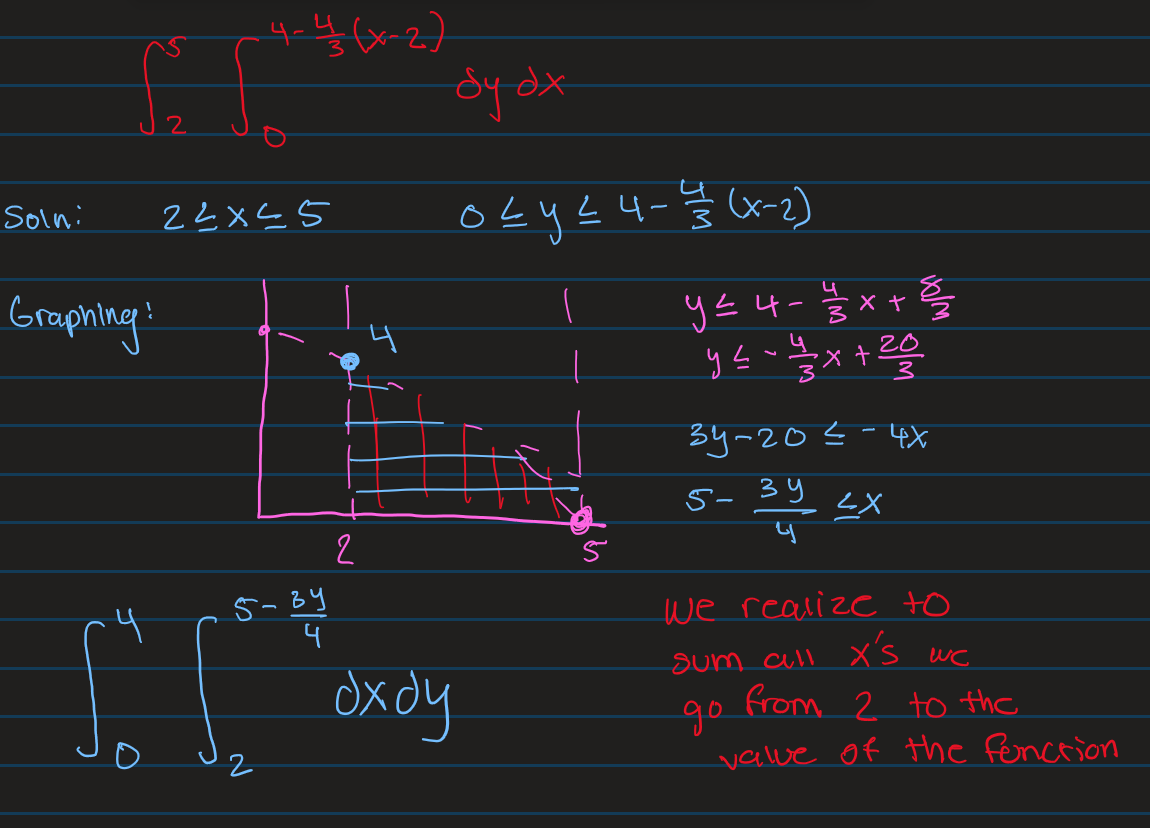 ∫₂⁵ ∫₀^{4-4/3(x-2)} dy dx
Soln: 2 ≤ x ≤ 5 0 ≤ y ≤ 4 - 4/3 (x-2)
Graphing:
4
2
5
y ≤ 4 - 4/3 x + 8/3
y ≤ - 4/3 x + 20/3
3y - 20 ≤ - 4x
5 - 3y/4 ≤ x
∫₀⁴ ∫₂^{5 - 3y/4} dx dy
we realize to
sum all x's we
go from 2 to the
value of the function